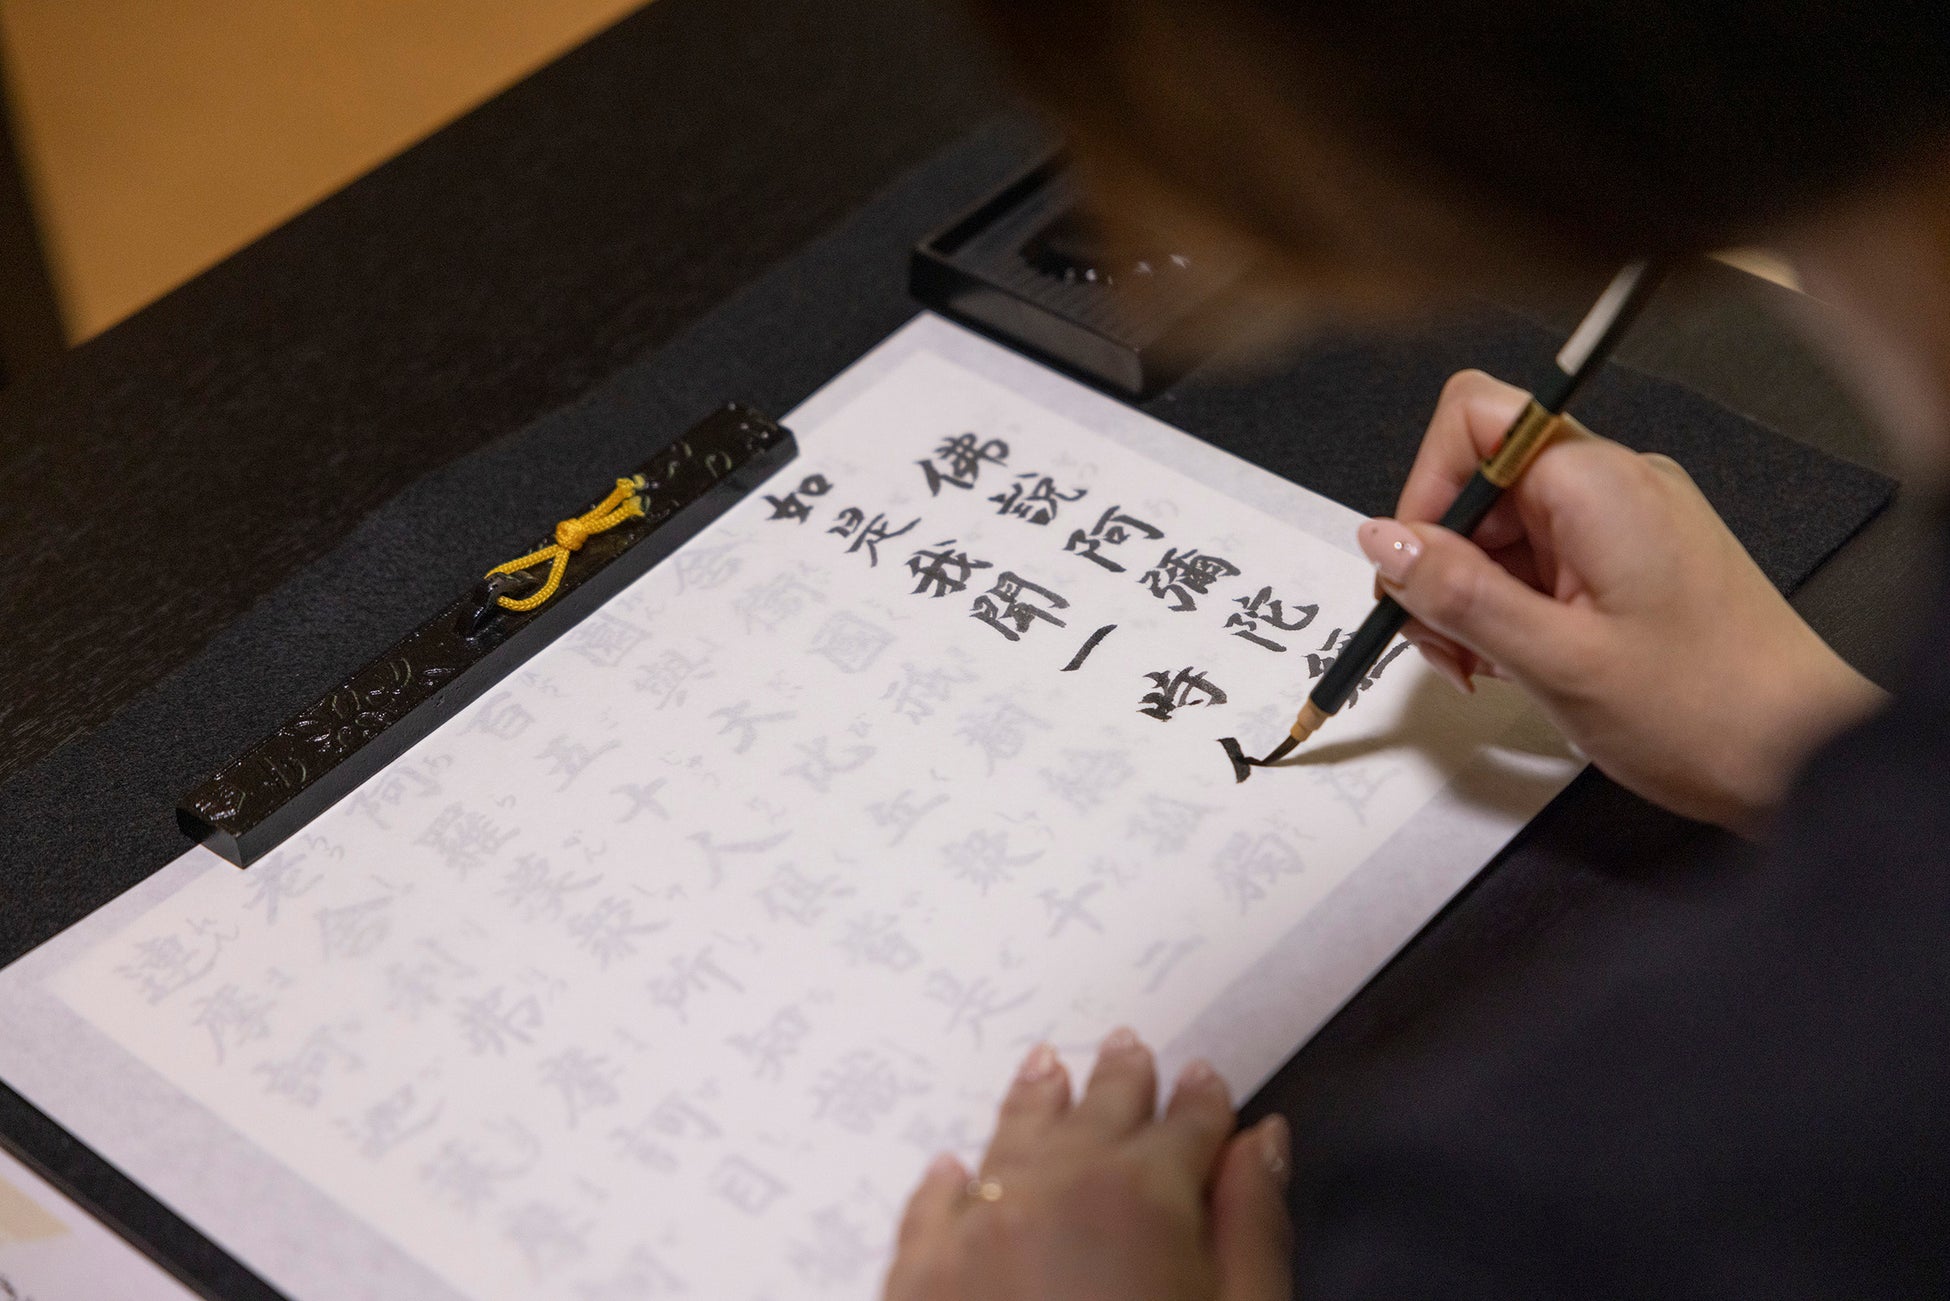 佛説阿彌陀經
如是我聞一時
舍衛國祇樹給孤獨
園與大比丘衆千二
百五十人倶皆是
阿羅漢衆所知識
老舍利弗摩訶目
連摩訶迦葉摩訶